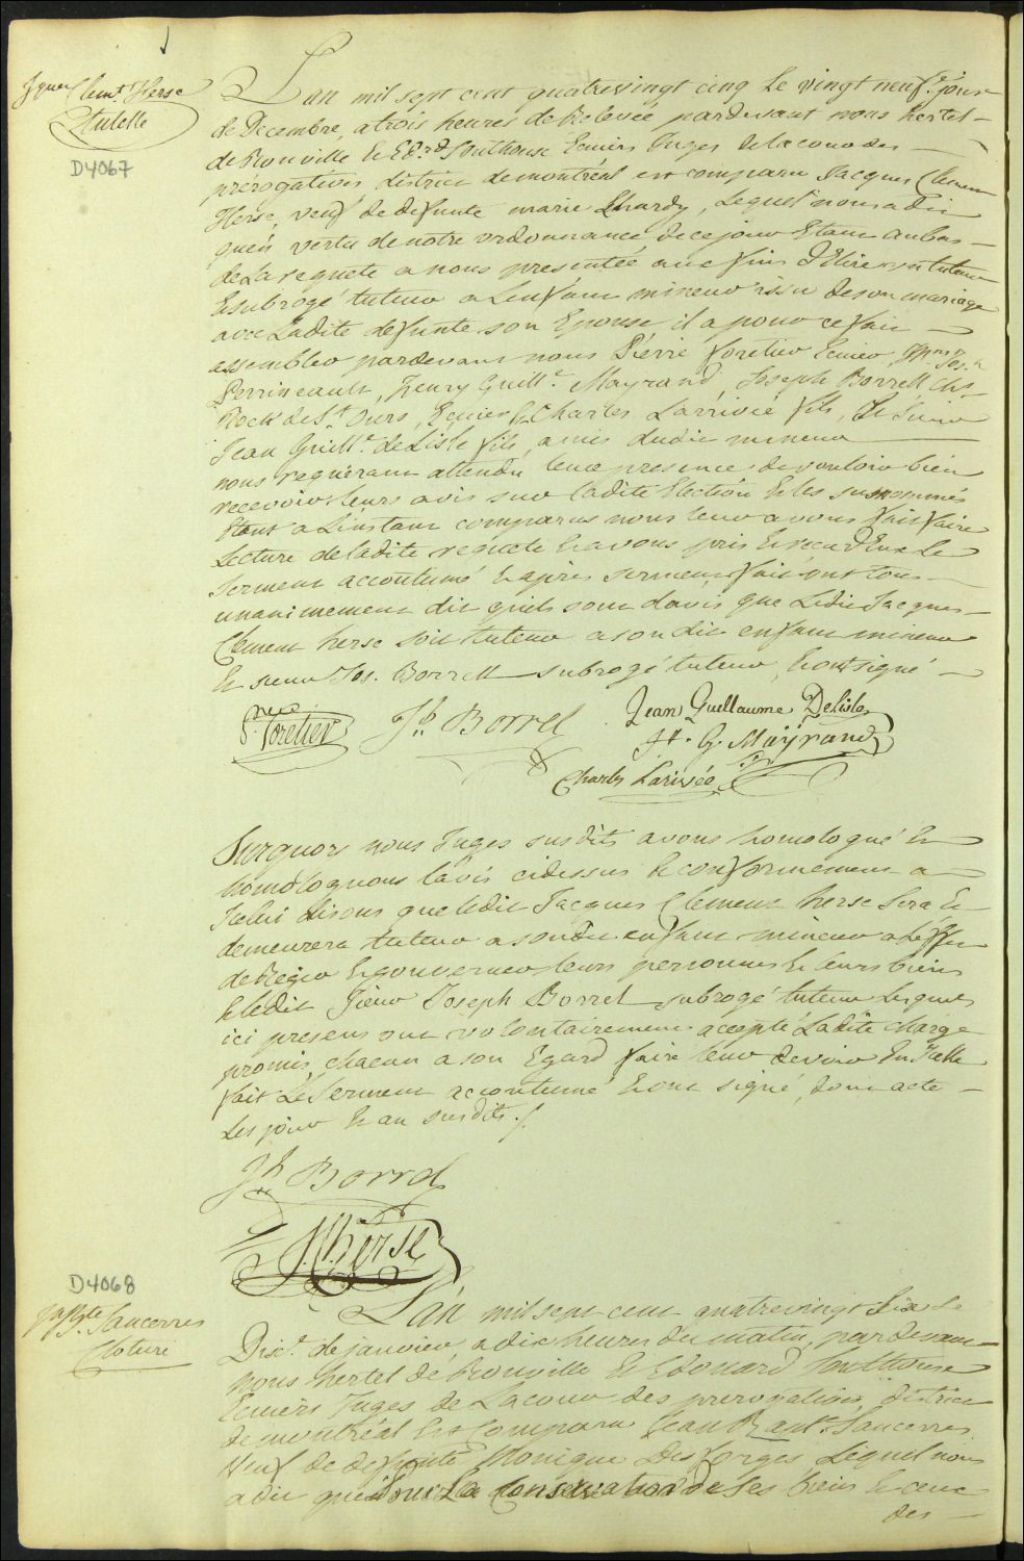 Jques Clemt. Herse
Tutelle
D4067
L'an mil sept cent quatrevingt cinq le vingt neufe. jour
de Decembre, a trois heures de Relevée pardevant nous hertel
de Rouville & Edrd. Southouse Ecuiers Juges de la cour des
prérogatives district de montréal est comparu Jacques Clement
Herse, veuf de defunte marie Lhardy, Lequel nous a dit
qu'en vertu de notre ordonnance de ce jour Etant au bas
de La requete a nous presentée aux fins d'Elire un tuteur
& subrogé tuteur a L'enfant mineur issu de son mariage
avec Ladite defunte son Epouse, il a pour ce fait
assembler pardevant nous Pierre foretier Ecuier
Perrineault, henry Guillt. Mayrand, Joseph Borrell
Rock de St. Ours, Ecuier Charles Larrivié fils, & Sieur
Jean Guillt. de Lisle fils, amis dudit mineur
nous requérant attendu leur presence de vouloir bien
recevoir leurs avis sur ladite Election & les susnommés
Etant a L'instant comparus nous leur avons fait faire
Lecture de ladite requete & avons pris & reçu d'Eux Le
Serment accoutumé & après serment fait ont tous
unanimement dit qu'ils sont davis que Ledit Jacques
Clement herse soit tuteur a son dit enfant mineur
& sieur Jos. Borrell subrogé tuteur, & ont signé
Prre
P. Foretier
Jh. Borrel
Jean Guillaume Delisle
H. G. Mayrand
Charles Larivée
Surquoy nous Juges susdits avons homologué &
homologuons l'avis cidessus & conformement a
Icelui disons que ledit Jacques Clement herse sera &
demeurera tuteur a son dit enfant mineur a L'effet
de Régir & gouverner leurs personnes & leurs biens
& ledit Sieur Joseph Borrel subrogé tuteur Lesquels
ici presens ont volontairement accepté Ladite charge
promis chacun a son Egard faire leur devoir En Icelle
fait Le Serment accoutumé & ont signé, dont acte
Les jour & an susdits ./.
Jh Borrel
J. C. herse
D4068
Jn Bte. Sancerres
Cloture
L'an mil sept cent quatrevingt Six Le
Dixe. de janvier, a dix heures du matin, pardevant
nous hertel de Rouville & Edouard Southouse
Ecuiers Juges de La cour des prerogatives district
de montréal Est Comparu Jean Bapte. Sancerres
Veuf de defunte Monique Desforges Lequel nous
a dit que pour La Conservation de Ses biens & ceux
des